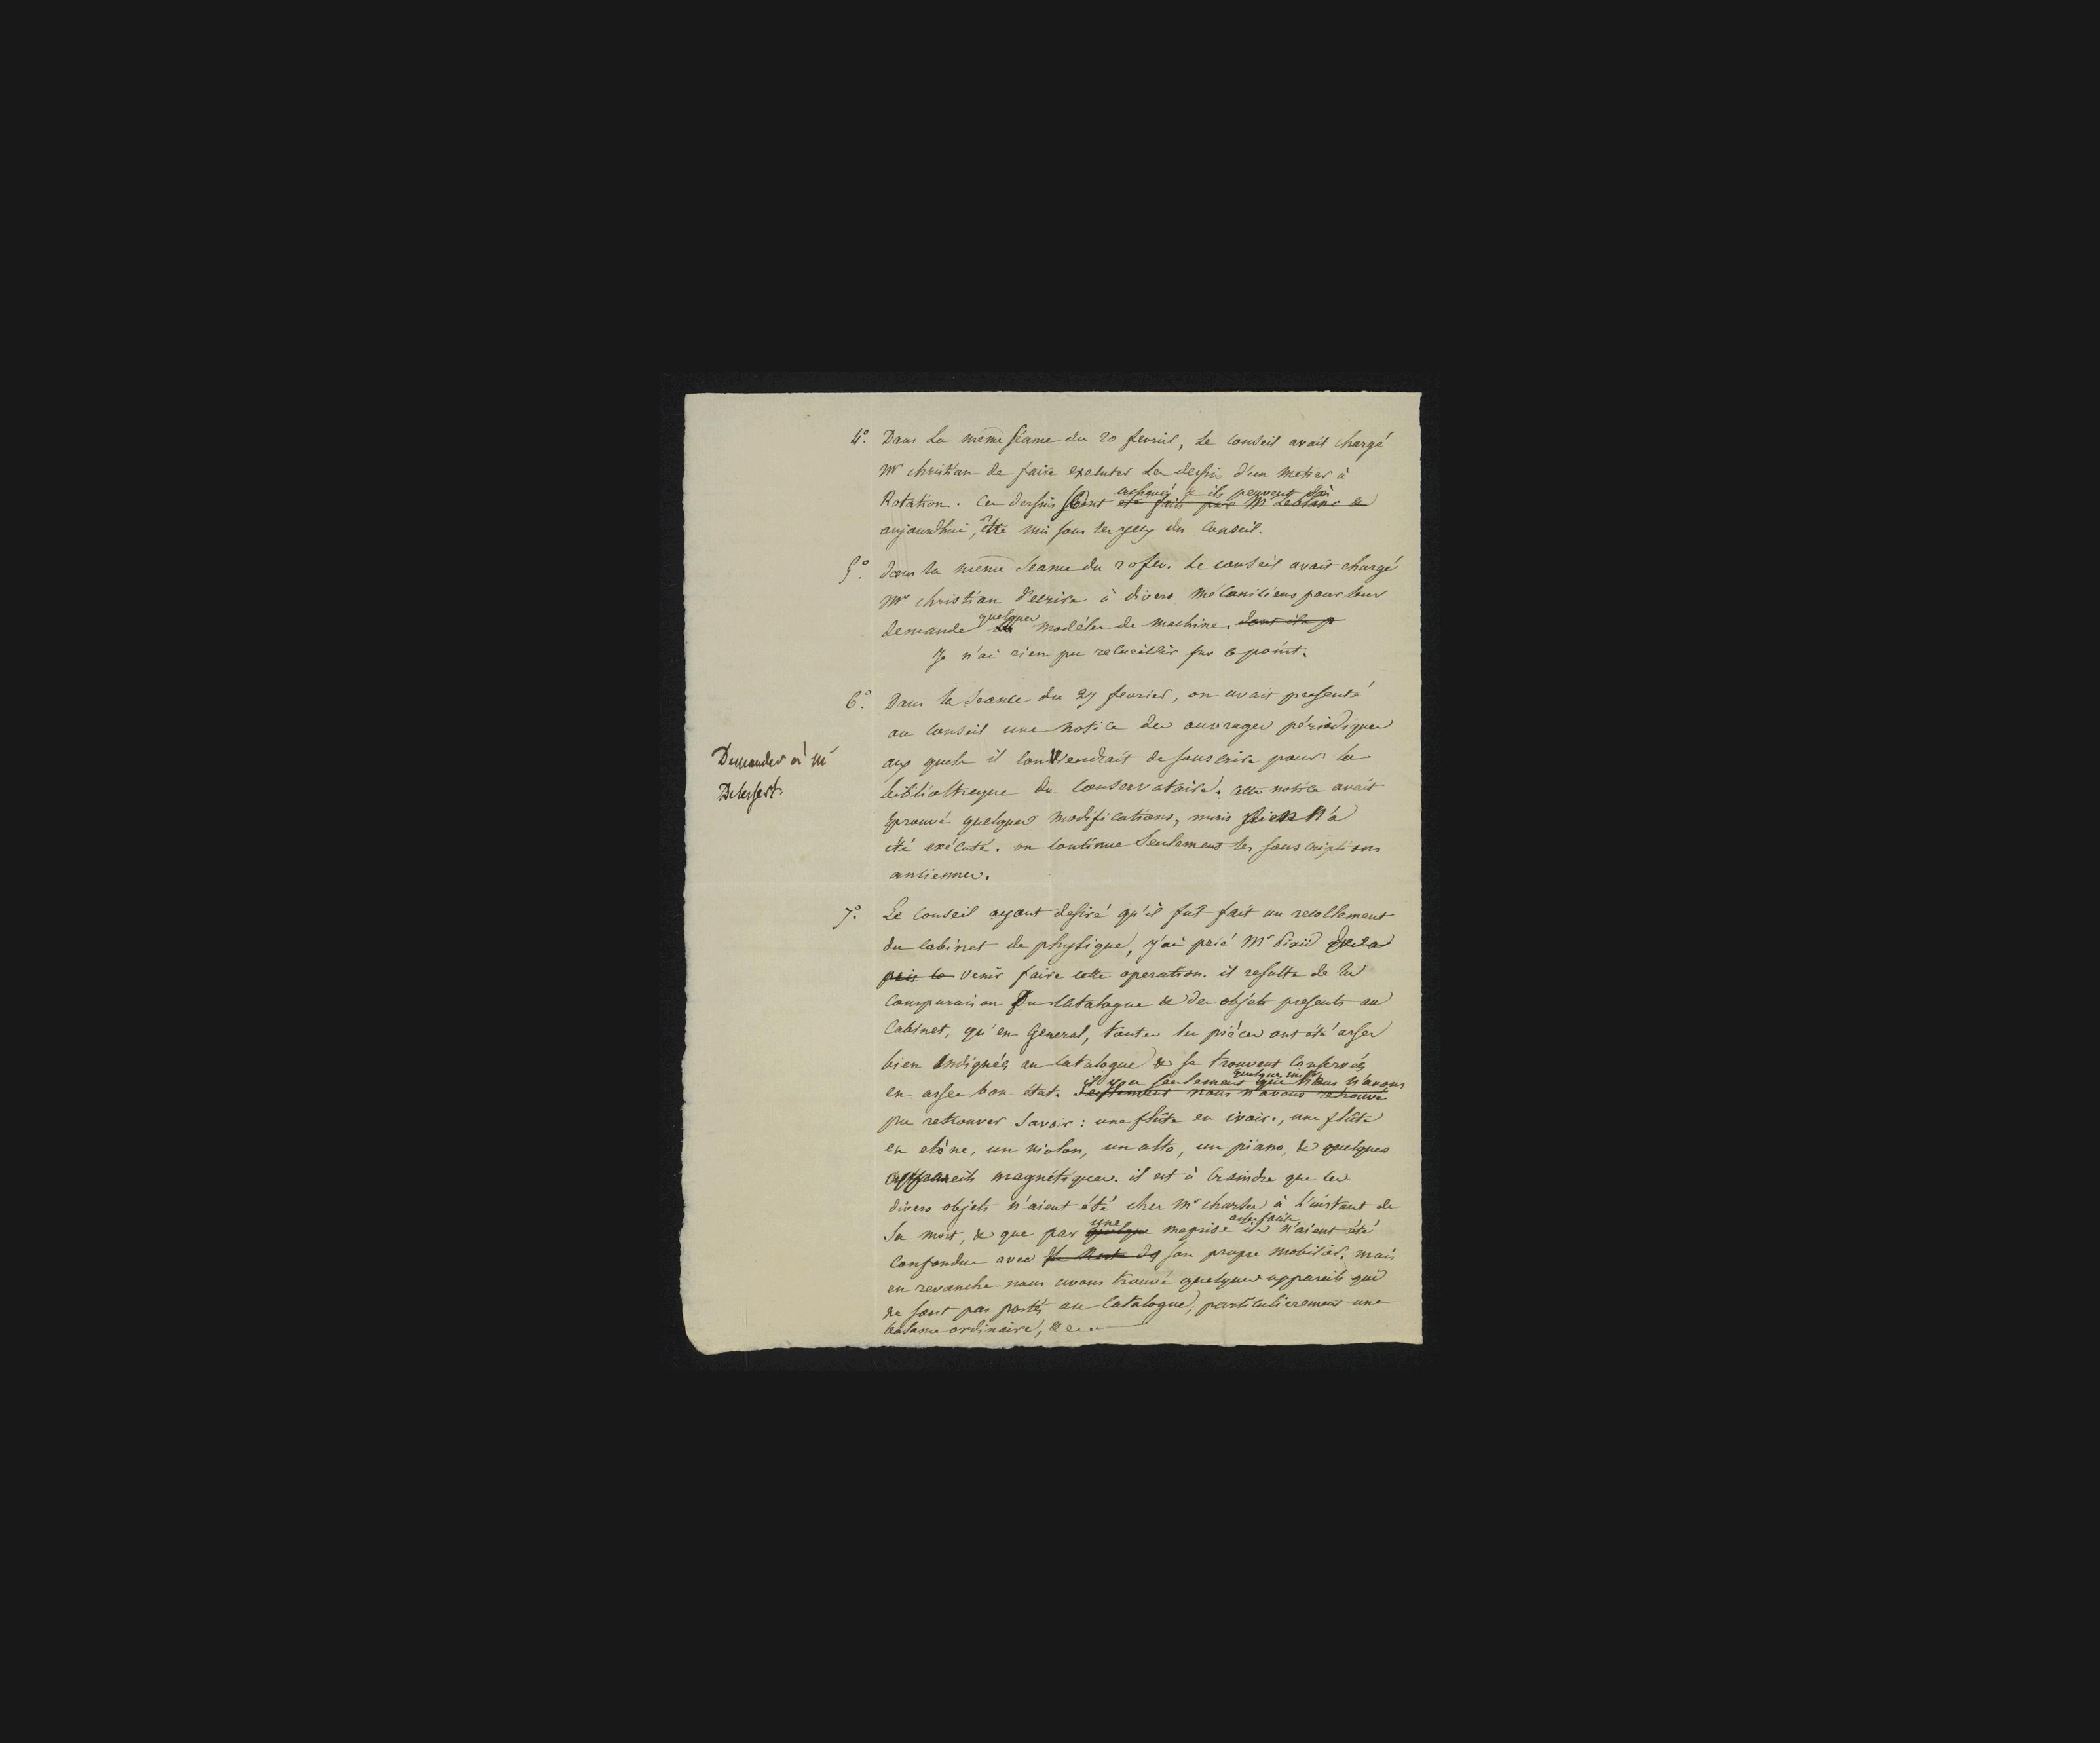 4°. Dans la même séance du 20 fevrier, le conseil avait chargé
Mr christian de faire executer les dessins d'un metier à
achevés & ils peuvent dès
Rotation. Ces dessins sont été faits par Mr Leblanc &
aujourdhui, être mis sous les yeux du Conseil.
5°. dans la même seance du 20 fev. le conseil avait chargé
Mr christian d'ecrire à divers mécaniciens pour leur
quelques
demander modèles de machine. dont ils p
Je n'ai rien pu recueillir sur ce point.
6°. Dans la séance du 27 fevrier, on avait presenté
au conseil une notice des ouvrages périodiques
Demander à M
aux quels il conviendrait de souscrire pour la
Delessert.
bibliotheque du conservatoire. cette notice avait
éprouvé quelques modifications, mais rien n'a
été exécuté. on continue seulement les souscriptions
anciennes.
7°. Le conseil ayant desiré qu'il fut fait un recollement
du cabinet de physique, j'ai prié Mr Pixii de
venir faire cette operation. il resulte de la
comparaison du catalogue & des objets presents au
Cabinet, qu'en General, toutes les pièces ont été assez
bien indiqués au catalogue & se trouvent conservés
il y a seulement que nous n'avons
en assez bon état. Seulement nous n'avons retrouvé
pu retrouver savoir : une flûte en ivoire, une flûte
en ebène, un violon, un alto, un piano, & quelques
appareils magnétiques. il est à craindre que ces
divers objets n'aient été chez Mr charles à l'instant de
une
sa mort, & que par quelque meprise ils n'aient été
confondus avec le reste de son propre mobilier. mais
en revanche nous avons trouvé quelques appareils qui
ne sont pas portés au Catalogue, particulierement une
balance ordinaire, &